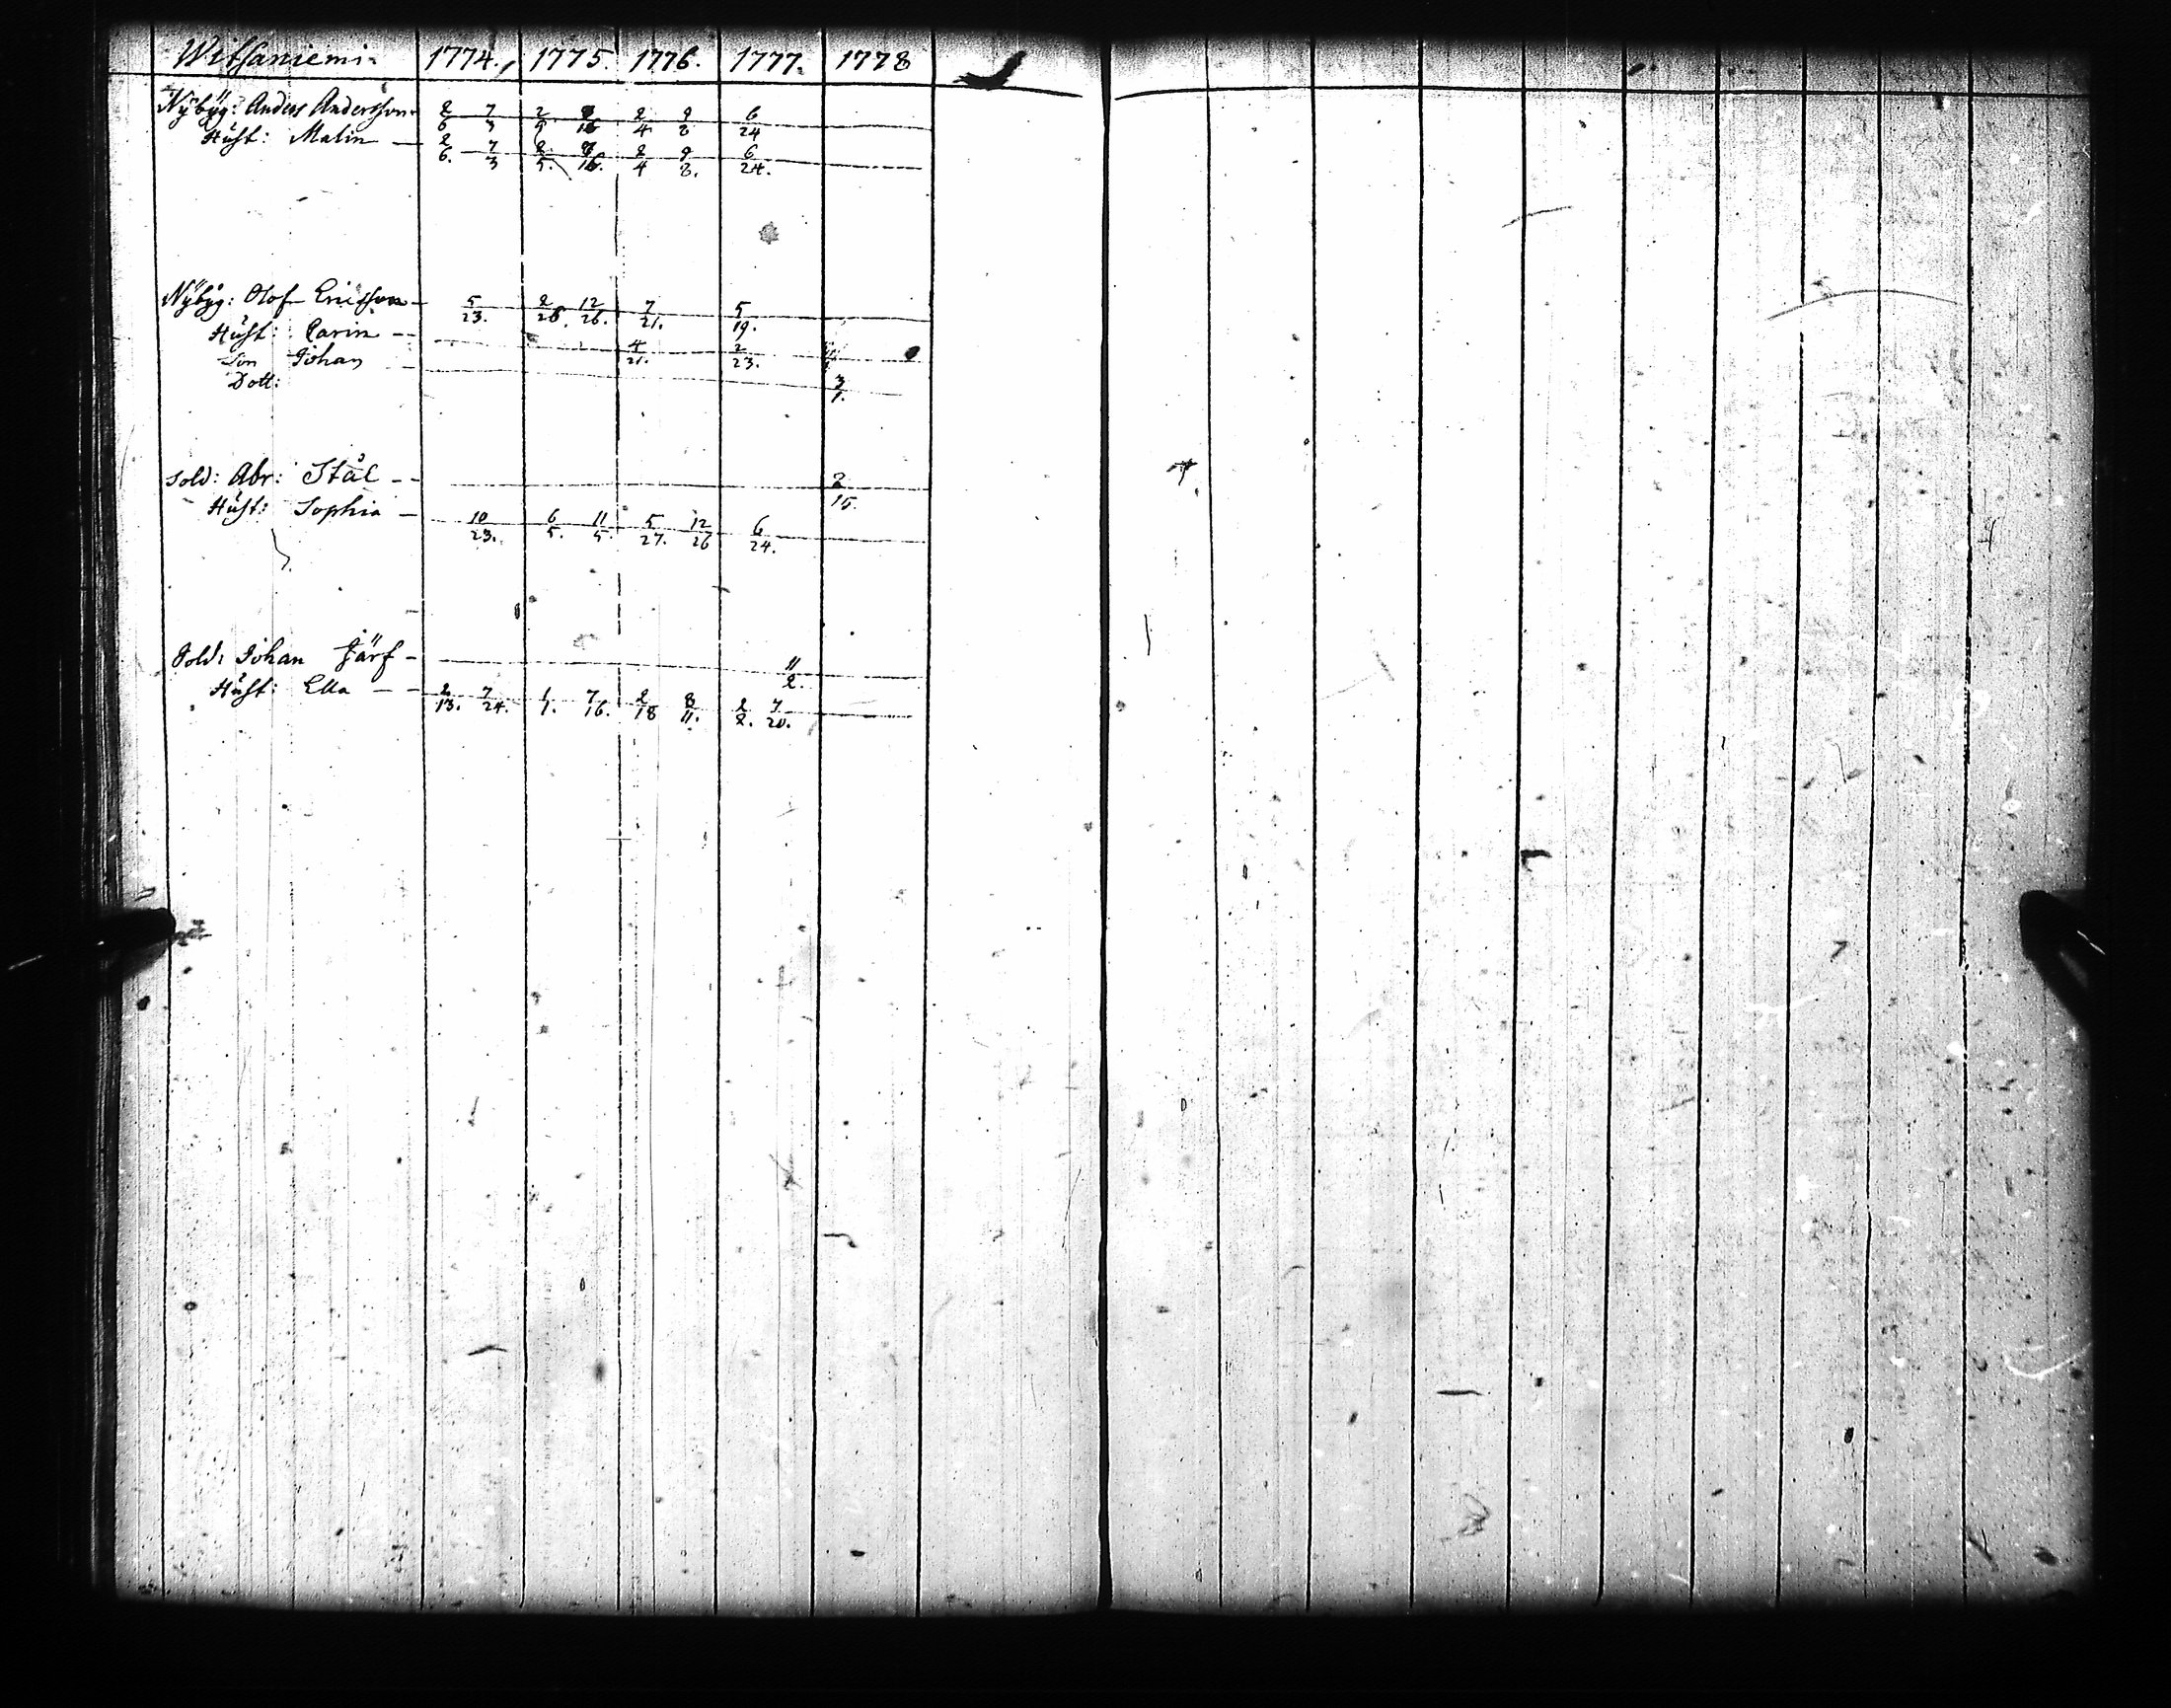 Witsaniemi. 1774. 1775. 1776. 1777. 1778
Nÿbÿg: Anders Andersson 2/6 7/3 2/5 2/4 9/2 6/24
Hust: Malin — 2/6. 7/3 2/5. 2/4 9/2. 6/24.
Nÿbÿg: Olof Ericsson - 5/23. 2/26. 12/26. 7/21. 5/19.
Hust: Carin --
Son Johan 4/21. 2/23.
Dott: 3/1.
Sold: Abr: Stål -- 2/15.
Hust: Sophia — 10/23. 6/5. 11/5. 5/27. 12/26 6/24.
Sold: Johan Järf - 11/2.
Hust: Ella — - 2/13. 7/24. 1/1. 7/16. 2/18 8/11. 2/2. 7/20.